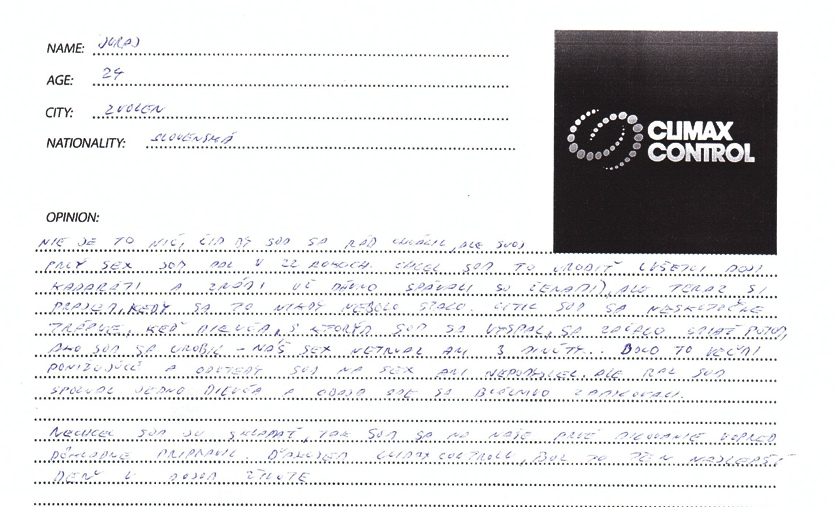 NAME: JURAJ
AGE: 24
CITY: ZVOLEN
NATIONALITY: SLOVENSKÁ
CLIMAX
CONTROL
OPINION:
NIE JE TO NIČ, ČÍM BY SOM SA RÁD CHVÁLIL, ALE SVOJ
PRVÝ SEX SOM MAL V 22 ROKOCH. CHCEL SOM TO UROBIŤ (VŠETCI MOJI
KAMARÁTI A ZNÁMI UŽ DÁVNO SPÁVALI SO ŽENAMI), ALE TERAZ SI
PRAJEM, KEBY SA TO NIKDY NEBOLO STALO. CÍTIL SOM SA NESKUTOČNE
TRÁPNE, KEĎ DIEVČA, S KTORÝM SOM SA VYSPAL, SA ZAČALO SMIAŤ POTOM,
AKO SOM SA UROBIL - NÁŠ SEX NETRVAL ANI 3 MINÚTY... BOLO TO VEĽMI
PONIŽUJÚCE A ODVTEDY SOM NA SEX ANI NEPOMYSLEL. ALE RAZ SOM
SPOZNAL JEDNO DIEVČA A OBAJA SME SA BLÁZNIVO ZAMILOVALI.
NECHCEL SOM JU SKLAMAŤ, TAK SOM SA NA NAŠE PRVÉ MILOVANIE VOPRED
DÔKLADNE PRIPRAVIL. ĎAKUJEM CLIMAX CONTROLU, BOL TO TEN NAJLEPŠÍ
DEŇ V MOJOM ŽIVOTE